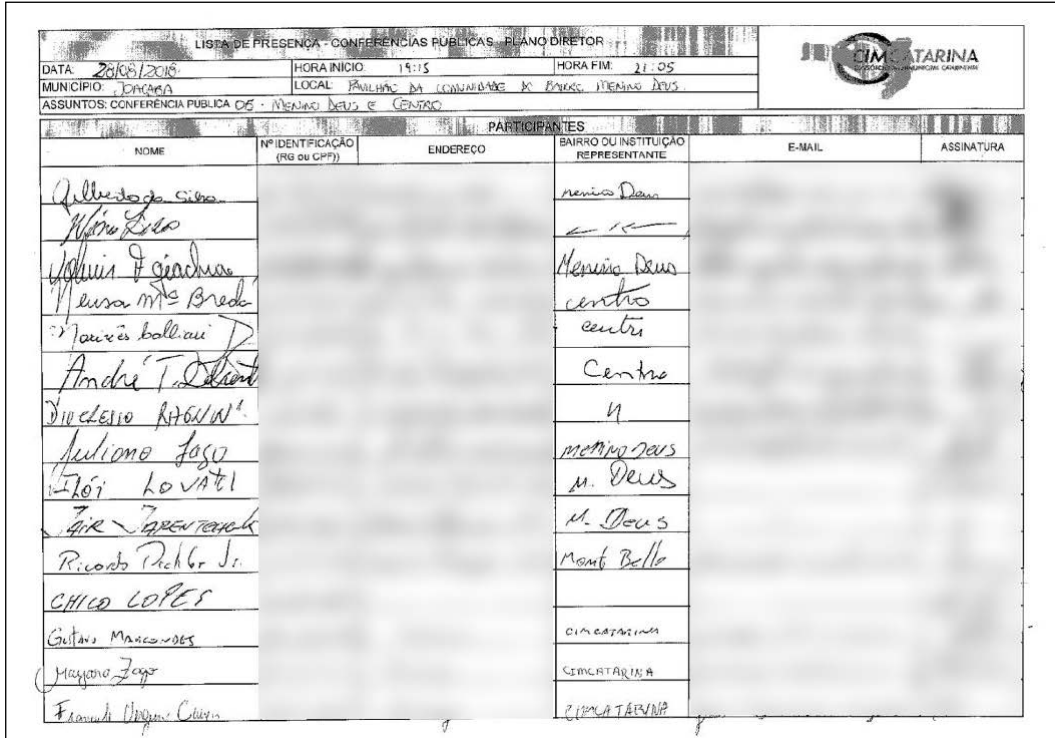 LISTA DE PRESENÇA - CONFERÊNCIAS PÚBLICAS - PLANO DIRETOR
CIMCATARINA
DATA: 28/08/2018 HORA INÍCIO: 19:15 HORA FIM: 21:05
MUNICÍPIO: JOAÇABA LOCAL: PAVILHÃO DA COMUNIDADE DO BAIRRO MENINO DEUS.
ASSUNTOS: CONFERÊNCIA PUBLICA 05 - MENINO DEUS E CENTRO
PARTICIPANTES
NOME Nº IDENTIFICAÇÃO (RG ou CPF)) ENDEREÇO BAIRRO OU INSTITUIÇÃO REPRESENTANTE E-MAIL ASSINATURA
Gilberto da Silva menino Deus
Menino Deus
Neusa Mª Breda centro
centro
André T. Centro
DIOCLESIO 11
Juliano Menino Deus
LOVATEL M. Deus
JAIR M. Deus
Ricardo Jr. Mont Bello
CHICO LOPES
Gustavo Marcondes CIMCATARINA
Mayara Zago CIMCATARINA
CIMCATARINA